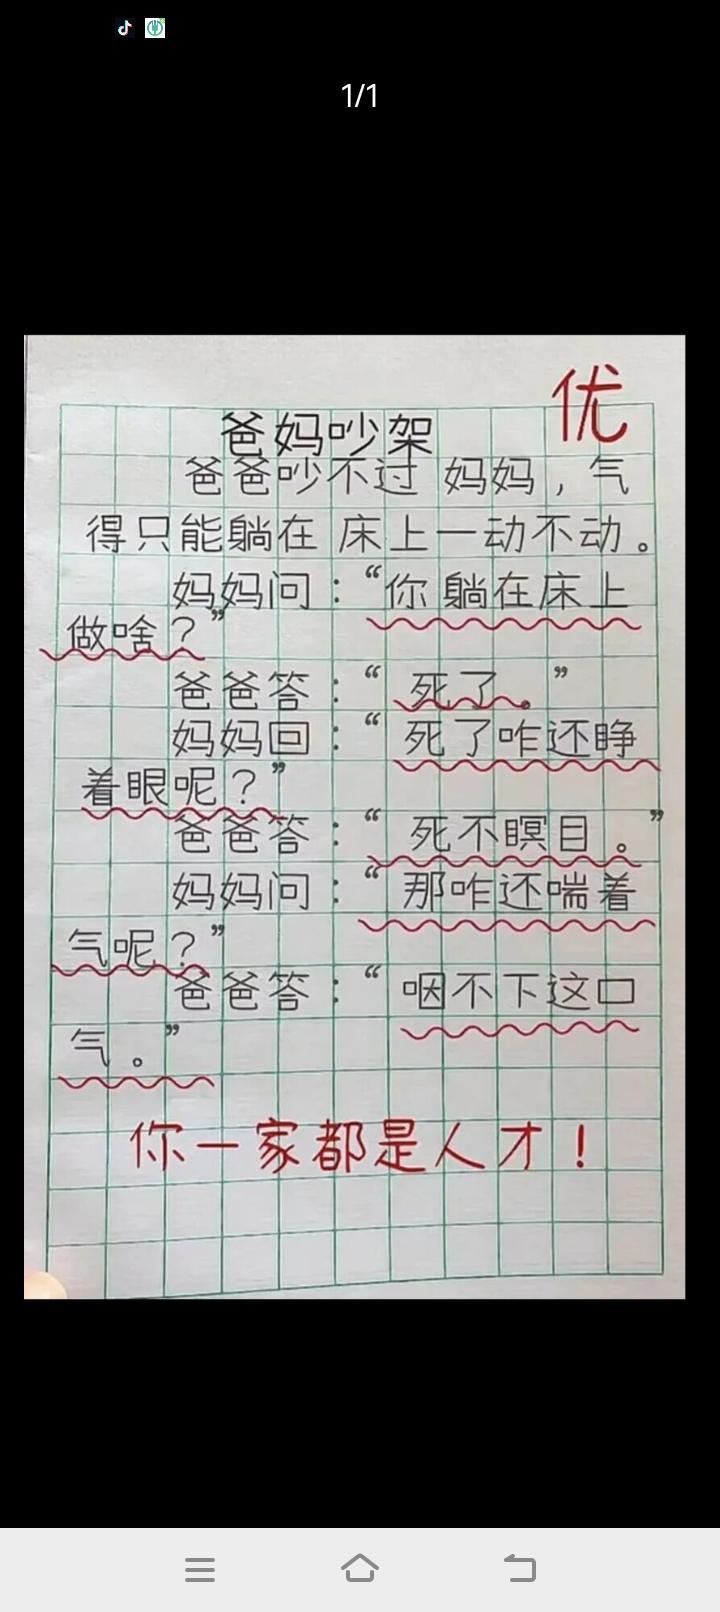 1/1
优
爸妈吵架
爸爸吵不过妈妈，气
得只能躺在床上一动不动。
妈妈问：“你躺在床上
做啥？”
爸爸答：“死了。”
妈妈回：“死了咋还睁
着眼呢？”
爸爸答：“死不瞑目。”
妈妈问：“那咋还喘着
气呢？”
爸爸答：“咽不下这口
气。”
你一家都是人才！